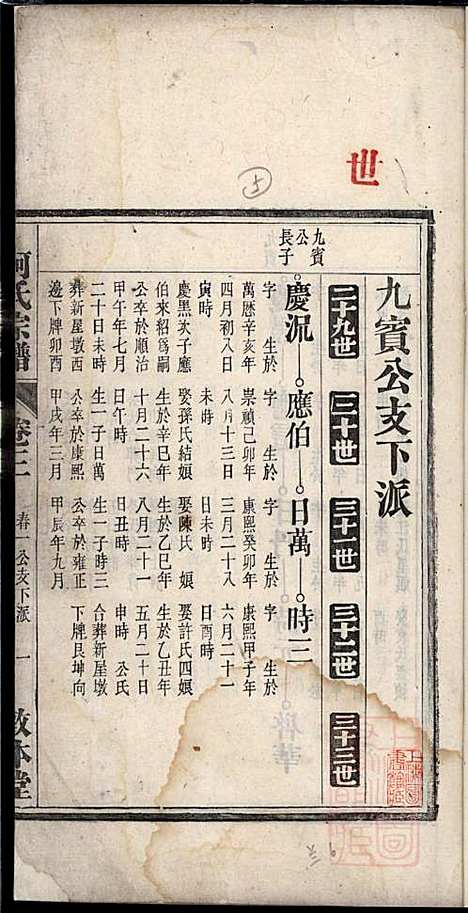 世
九賓公支下派
二十九世
三十世
三十一世
三十二世
三十三世
九賓
公
長子
慶況
應伯
日萬
時三
字　生於
萬歷辛亥年
四月初八日
寅時
慶黑次子應
伯來紹爲嗣
公卒於順治
甲午年七月
二十日未時
葬新屋墩酉
邊下牌卯酉
字　生於
崇禎己卯年
八月十三日
未時
娶孫氏結娘
生於辛巳年
十月二十六
日午時
生一子日萬
公卒於康熙
甲戌年三月
字　生於
康熙癸卯年
三月二十八
娶陳氏　娘
生於乙巳年
八月二十一
日丑時
生一子時三
公卒於雍正
甲辰年九月
字　生於
康熙甲子年
六月二十一
日酉時
娶許氏四娘
生於乙丑年
五月二十日
申時　公氏
合葬新屋墩
下牌艮坤向
何氏宗譜
卷二
春一公支下派
一
敦本堂